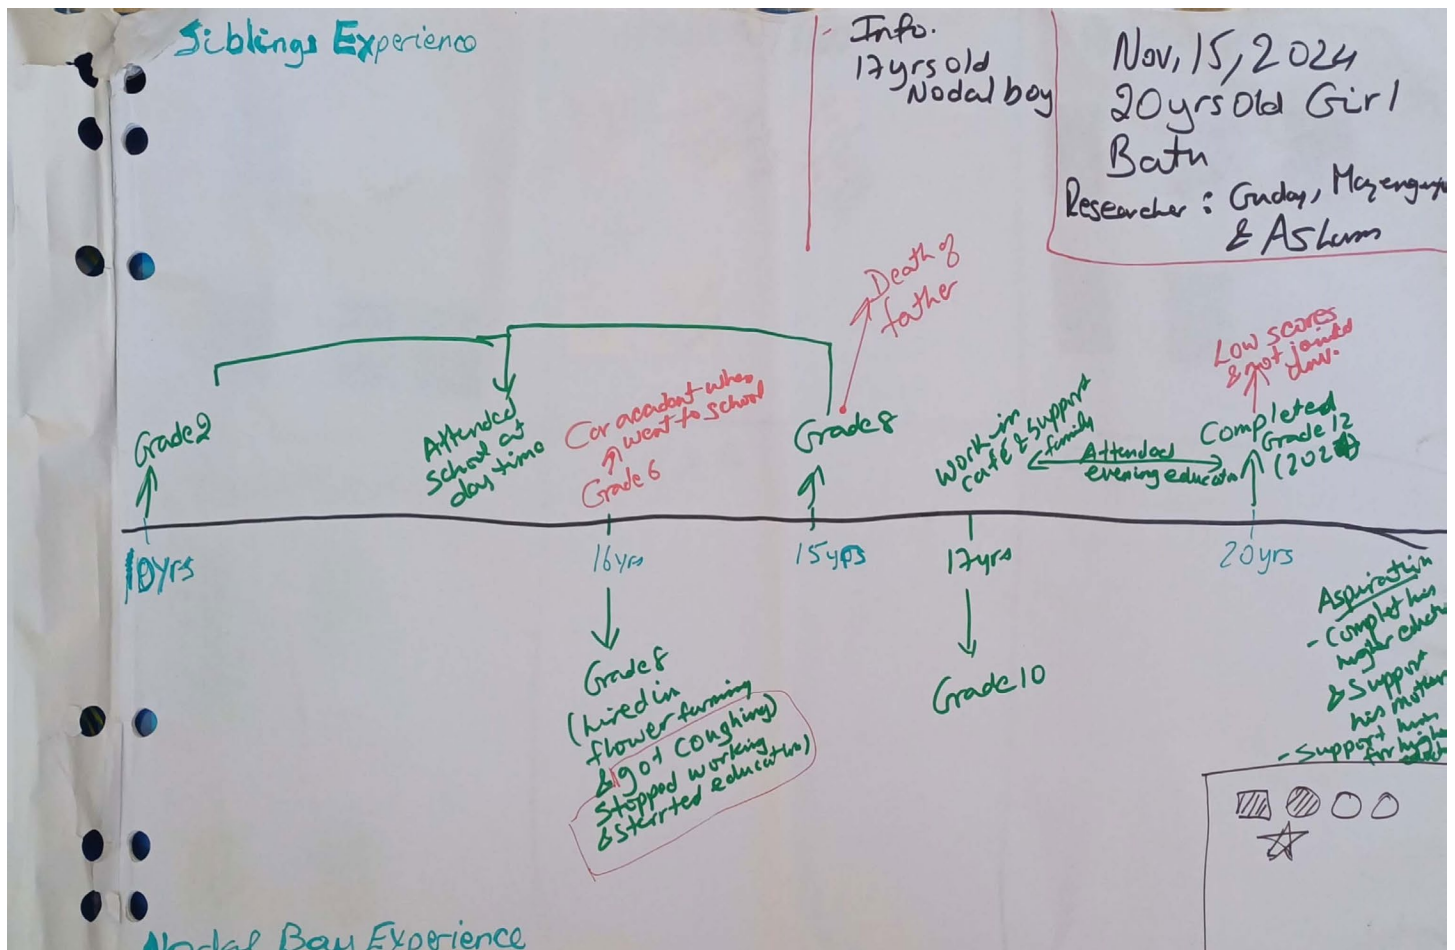 Siblings Experience
Info.
17yrs old
Nodal boy
Nov, 15, 2024
20yrs Old Girl
Batu
Researcher :
&
Death of
father
Low scores
& not joined
Grade 2
Attended
school at
day time
Car acadant when
went to school
Grade 6
Grade 8
Work in
café & support
family
Attended
evening
Completed
Grade 12
10yrs
16yrs
15yrs
17yrs
20yrs
Grade 8
(hired in
flower farming
& got coughing)
stopped working
Grade 10
Aspiration
- Complet his
higher
& Support
his
- Support
for
Nodal Boy Experience